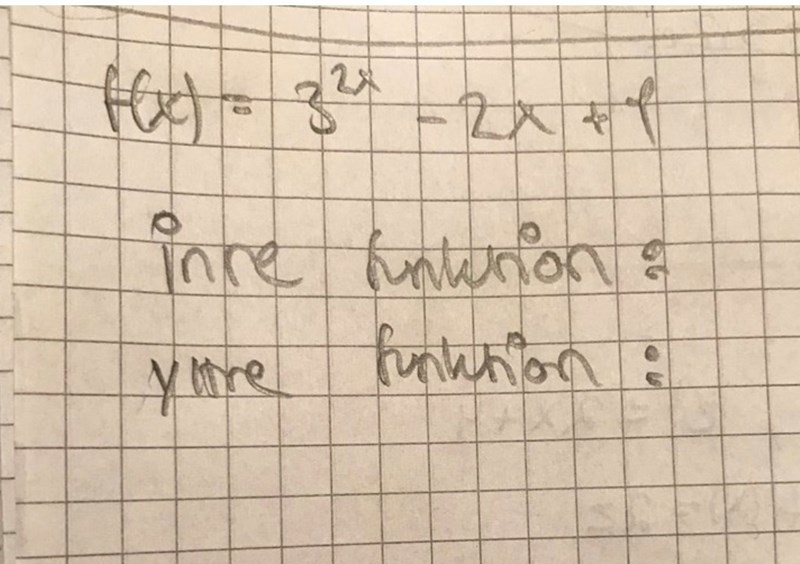 f(x) = 3^2x - 2x + 1
inre funktion :
yttre funktion :